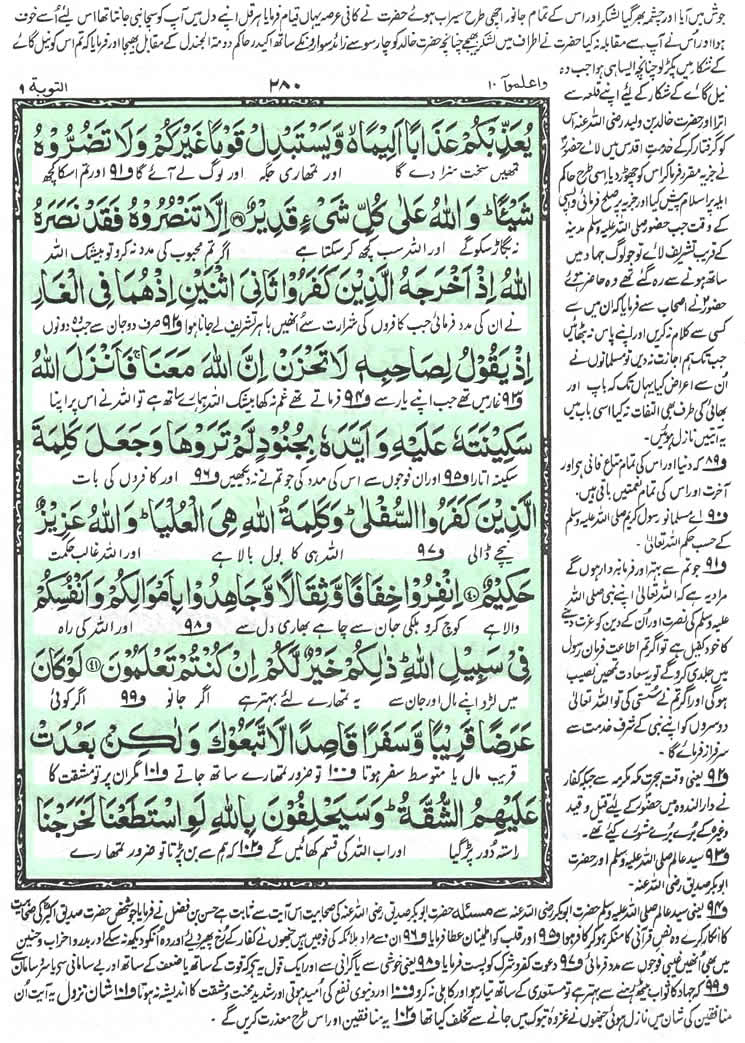 جوش میں آیا اور چشمہ بھر گیا لشکر اور اس کے تمام جانور اچھی طرح سیراب ہوئے حضرت نے کافی عرصہ یہاں قیام فرمایا ہرقل اپنے دل میں آپ کو سچا نبی جانتا تھا اس لیئے اُسے خوف
ہوا اور اُس نے آپ سے مقابلہ نہ کیا حضرت نے اطراف میں لشکر بھیجے چنانچہ حضرت خالد کو چار سو سے زائد سواروں کے ساتھ اکیدر حاکم دومۃ الجندل کے مقابل بھیجا اور فرمایا کہ تم اس کو نیل گائے
کے شکار میں پکڑ لو چنانچہ ایسا ہی ہوا جب وہ
التوبۃ ۹
۲۸۰
واعلموآ ۱۰
یُعَذِّبْكُمْ عَذَابًا اَلِیْمًا ۙ وَّ یَسْتَبْدِلْ قَوْمًا غَیْرَكُمْ وَ لَا تَضُرُّوْهُ
تمھیں سخت سزا دے گا اور تمھاری جگہ اور لوگ لے آئے گا و۹۱ اور تم اسکا کچھ
شَیْـًٔا ؕ وَ اللّٰهُ عَلٰى كُلِّ شَیْءٍ قَدِیْرٌ ۳۹ اِلَّا تَنْصُرُوْهُ فَقَدْ نَصَرَهُ
نہ بگاڑ سکو گے اور اللہ سب کچھ کر سکتا ہے اگر تم محبوب کی مدد نہ کرو تو بیشک اللہ
اللّٰهُ اِذْ اَخْرَجَهُ الَّذِیْنَ كَفَرُوْا ثَانِیَ اثْنَیْنِ اِذْ هُمَا فِی الْغَارِ
نے ان کی مدد فرمائی جب کافروں کی شرارت سے اُنھیں باہر تشریف لے جانا ہوا و۹۲ صرف دو جان سے جب وہ دونوں
اِذْ یَقُوْلُ لِصَاحِبِهٖ لَا تَحْزَنْ اِنَّ اللّٰهَ مَعَنَا ۚ فَاَنْزَلَ اللّٰهُ
و۹۳ غار میں تھے جب اپنے یار سے و۹۴ فرماتے تھے غم نہ کھا بیشک اللہ ہمارے ساتھ ہے تو اللہ نے اس پر اپنا
سَكِیْنَتَهٗ عَلَیْهِ وَ اَیَّدَهٗ بِجُنُوْدٍ لَّمْ تَرَوْهَا وَ جَعَلَ كَلِمَةَ
سکینہ اتارا و۹۵ اور ان فوجوں سے اس کی مدد کی جو تم نے نہ دیکھیں و۹۶ اور کافروں کی بات
الَّذِیْنَ كَفَرُوا السُّفْلٰى ؕ وَ كَلِمَةُ اللّٰهِ هِیَ الْعُلْیَا ؕ وَ اللّٰهُ عَزِیْزٌ
نیچے ڈالی و۹۷ اللہ ہی کا بول بالا ہے اور اللہ غالب حکمت
حَكِیْمٌ ۴۰ اِنْفِرُوْا خِفَافًا وَّ ثِقَالًا وَّ جَاهِدُوْا بِاَمْوَالِكُمْ وَ اَنْفُسِكُمْ
والا ہے کوچ کرو ہلکی جان سے چاہے بھاری دل سے و۹۸ اور اللہ کی راہ
فِیْ سَبِیْلِ اللّٰهِ ؕ ذٰلِكُمْ خَیْرٌ لَّكُمْ اِنْ كُنْتُمْ تَعْلَمُوْنَ ۴۱ لَوْ كَانَ
میں لڑو اپنے مال اور جان سے یہ تمھارے لئے بہتر ہے اگر جانو و۹۹ اگر کوئی
عَرَضًا قَرِیْبًا وَّ سَفَرًا قَاصِدًا لَّاتَّبَعُوْكَ وَ لٰكِنْۢ بَعُدَتْ
قریب مال یا متوسط سفر ہوتا و۱۰۰ تو ضرور تمھارے ساتھ جاتے و۱۰۱ مگر ان پر تو مشقت کا
عَلَیْهِمُ الشُّقَّةُ ؕ وَ سَیَحْلِفُوْنَ بِاللّٰهِ لَوِ اسْتَطَعْنَا لَخَرَجْنَا
راستہ دُور پڑ گیا اور اب اللہ کی قسم کھائیں گے و۱۰۲ کہ ہم سے بن پڑتا تو ضرور تمھارے
نیل گائے کے شکار کے لئے اپنے قلعہ سے
اترا اور حضرت خالد بن ولید رضی اللہ عنہ اُس
کو گرفتار کر کے خدمتِ اقدس میں لائے حضور
نے جزیہ مقرر فرما کر اس کو چھوڑ دیا اسی طرح حاکم
ایلہ پر اسلام پیش کیا اور جزیہ پر صلح فرمائی واپسی
کے وقت جب حضور صلی اللہ علیہ وسلم مدینہ
کے قریب تشریف لائے تو جو لوگ جہاد میں
ساتھ ہونے سے رہ گئے تھے وہ حاضر ہوئے
حضور نے اصحاب سے فرمایا کہ ان میں سے
کسی سے کلام نہ کریں اور اپنے پاس نہ بٹھائیں
جب تک ہم اجازت نہ دیں تو مسلمانوں نے
اُن سے اعراض کیا یہاں تک کہ باپ اور
بھائی کی طرف بھی التفات نہ کیا اسی باب میں
یہ آیتیں نازل ہوئیں۔
و۸۹ کہ دنیا اور اس کی تمام متاع فانی ہے اور
آخرت اور اس کی تمام نعمتیں باقی ہیں۔
و۹۰ اے مسلمانو رسول کریم صلی اللہ علیہ وسلم
کے حسب حکم اللہ تعالیٰ۔
و۹۱ جو تم سے بہتر اور فرمانبردار ہوں گے
مراد یہ ہے کہ اللہ تعالیٰ اپنے نبی صلی اللہ
علیہ وسلم کی نصرت اور اُن کے دین کو عزت دینے
کا خود کفیل ہے تو اگر تم اطاعت فرمان رسول
میں جلدی کرو گے تو یہ سعادت تمھیں نصیب
ہو گی اور اگر تم نے سُستی کی تو اللہ تعالیٰ
دوسروں کو اپنے نبی کے شرف خدمت سے
سرفراز فرمائے گا۔
و۹۲ یعنی وقت ہجرت مکہ مکرمہ سے جبکہ کفار
نے دار الندوہ میں حضور کے لئے قتل و قید
وغیرہ کے بُرے بُرے مشورے کئے تھے۔
و۹۳ سید عالم صلی اللہ علیہ وسلم اور حضرت
ابو بکر صدیق رضی اللہ عنہ۔
و۹۴ یعنی سید عالم صلی اللہ علیہ وسلم حضرت ابو بکر صدیق رضی اللہ عنہ سے مسئلہ حضرت ابو بکر صدیق رضی اللہ عنہ کی صحابیت اس آیت سے ثابت ہے حسن بن فضل نے فرمایا جو شخص حضرت صدیق اکبر کی صحابیت
کا انکار کرے وہ نصِ قرآنی کا منکر ہو کر کافر ہوا و۹۵ اور قلب کو اطمینان عطا فرمایا و۹۶ ان سے مراد ملائکہ کی فوجیں ہیں جنھوں نے کفار کے رُخ پھیر دیئے اور وہ اُنکو دیکھ نہ سکے اور بدر و احزاب و حنین
میں بھی اُنھیں غیبی فوجوں سے مدد فرمائی و۹۷ دعوتِ کفر و شرک کو پست فرمایا و۹۸ یعنی خوشی سے یا گرانی سے اور ایک قول یہ ہے کہ قوت کے ساتھ یا ضعف کے ساتھ اور بے سامانی سے یا سر و سامان سے
و۹۹ کہ جہاد کا ثواب بیٹھ رہنے سے بہتر ہے تو مستعدی کے ساتھ تیار ہو اور کاہلی نہ کرو و۱۰۰ اور دنیوی نفع کی اُمید ہوتی اور شدید محنت و مشقت کا اندیشہ نہ ہوتا و۱۰۱ شانِ نزول یہ آیت اُن
منافقین کی شان میں نازل ہوئی جنھوں نے غزوۂ تبوک میں جانے سے تخلف کیا تھا و۱۰۲ یہ منافقین اور اس طرح معذرت کریں گے۔